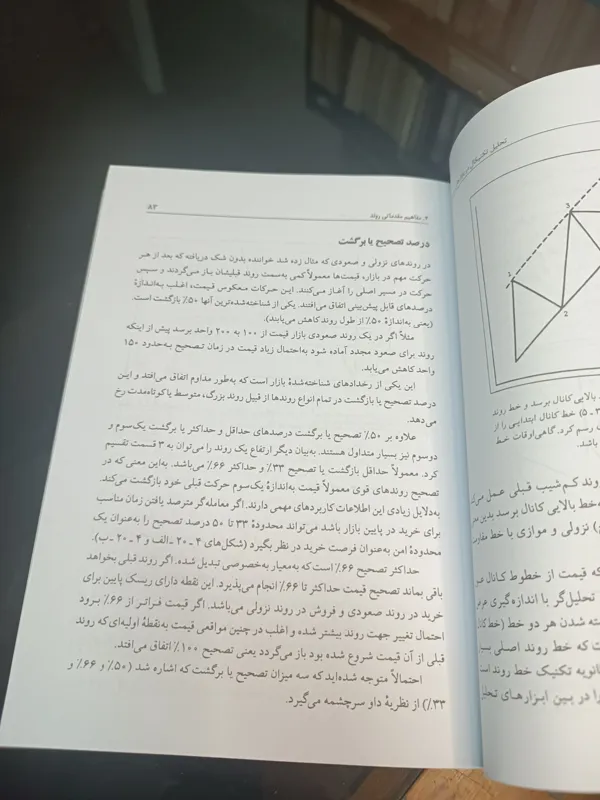 ۸۳
۴. مفاهیم مقدماتی روند
درصد تصحیح یا برگشت
در روندهای نزولی و صعودی که مثال زده شد خواننده بدون شک دریافته که بعد از هر
حرکت مهم در بازار، قیمت‌ها معمولاً کمی به‌سمت روند قبلیشان باز می‌گردند و سپس
حرکت در مسیر اصلی را آغاز می‌کنند. این حرکات معکوس قیمت، اغلب به‌اندازهٔ
درصدهای قابل پیش‌بینی اتفاق می‌افتند. یکی از شناخته‌شده‌ترین آنها ۵۰٪ بازگشت است.
(یعنی به‌اندازهٔ ۵۰٪ از طول روند کاهش می‌یابند).
مثلاً اگر در یک روند صعودی بازار قیمت از ۱۰۰ به ۲۰۰ واحد برسد پیش از اینکه
روند برای صعود مجدد آماده شود به‌احتمال زیاد قیمت در زمان تصحیح به‌حدود ۱۵۰
واحد کاهش می‌یابد.
این یکی از رخدادهای شناخته‌شدهٔ بازار است که به‌طور مداوم اتفاق می‌افتد و این
درصد تصحیح یا بازگشت در تمام انواع روندها از قبیل روند بزرگ، متوسط یا کوتاه‌مدت رخ
می‌دهد.
علاوه بر ۵۰٪ تصحیح یا برگشت درصدهای حداقل و حداکثر یا برگشت یک‌سوم و
دوسوم نیز بسیار متداول هستند. به‌بیان دیگر ارتفاع یک روند را می‌توان به ۳ قسمت تقسیم
کرد. معمولاً حداقل بازگشت یا تصحیح ۳۳٪ و حداکثر ۶۶٪ می‌باشد. به‌این معنی که در
تصحیح روندهای قوی معمولاً قیمت به‌اندازهٔ یک‌سوم حرکت قبلی خود بازگشت می‌کند.
به‌دلایل زیادی این اطلاعات کاربردهای مهمی دارند. اگر معامله‌گر مترصد یافتن زمان مناسب
برای خرید در پایین بازار باشد می‌تواند محدودهٔ ۳۳ تا ۵۰ درصد تصحیح را به‌عنوان یک
محدودهٔ امن به‌عنوان فرصت خرید در نظر بگیرد (شکل‌های ۴ ـ ۲۰ ـ الف و ۴ ـ ۲۰ ـ ب).
حداکثر تصحیح ۶۶٪ است که به‌معیار به‌خصوصی تبدیل شده. اگر روند قبلی بخواهد
باقی بماند تصحیح قیمت حداکثر تا ۶۶٪ انجام می‌پذیرد. این نقطه دارای ریسک پایین برای
خرید در روند صعودی و فروش در روند نزولی می‌باشد. اگر قیمت فراتر از ۶۶٪ برود
احتمال تغییر جهت روند بیشتر شده و اغلب در چنین مواقعی قیمت به‌نقطهٔ اولیه‌ای که روند
قبلی از آن قیمت شروع شده بود باز می‌گردد یعنی تصحیح ۱۰۰٪ اتفاق می‌افتد.
احتمالاً متوجه شده‌اید که سه میزان تصحیح یا برگشت که اشاره شد (۵۰٪ و ۶۶٪ و
۳۳٪) از نظریهٔ داو سرچشمه می‌گیرد.
تحلیل تکنیکال
1
2
3
بالایی کانال برسد و خط روند
۳ ـ ۵) خط کانال ابتدایی را از
رسم کرد. گاهی اوقات خط
باشد.
روند کم‌شیب قبلی عمل می‌کند
خط بالایی کانال برسد بدین
نزولی و موازی با خط مقاومت
که قیمت از خطوط کانال
تحلیل‌گر با اندازه‌گیری
شدن هر دو خط (خط کانال
که خط روند اصلی بسیار
ثانویه تکنیک خط روند است
را در بین ابزارهای تحلیل